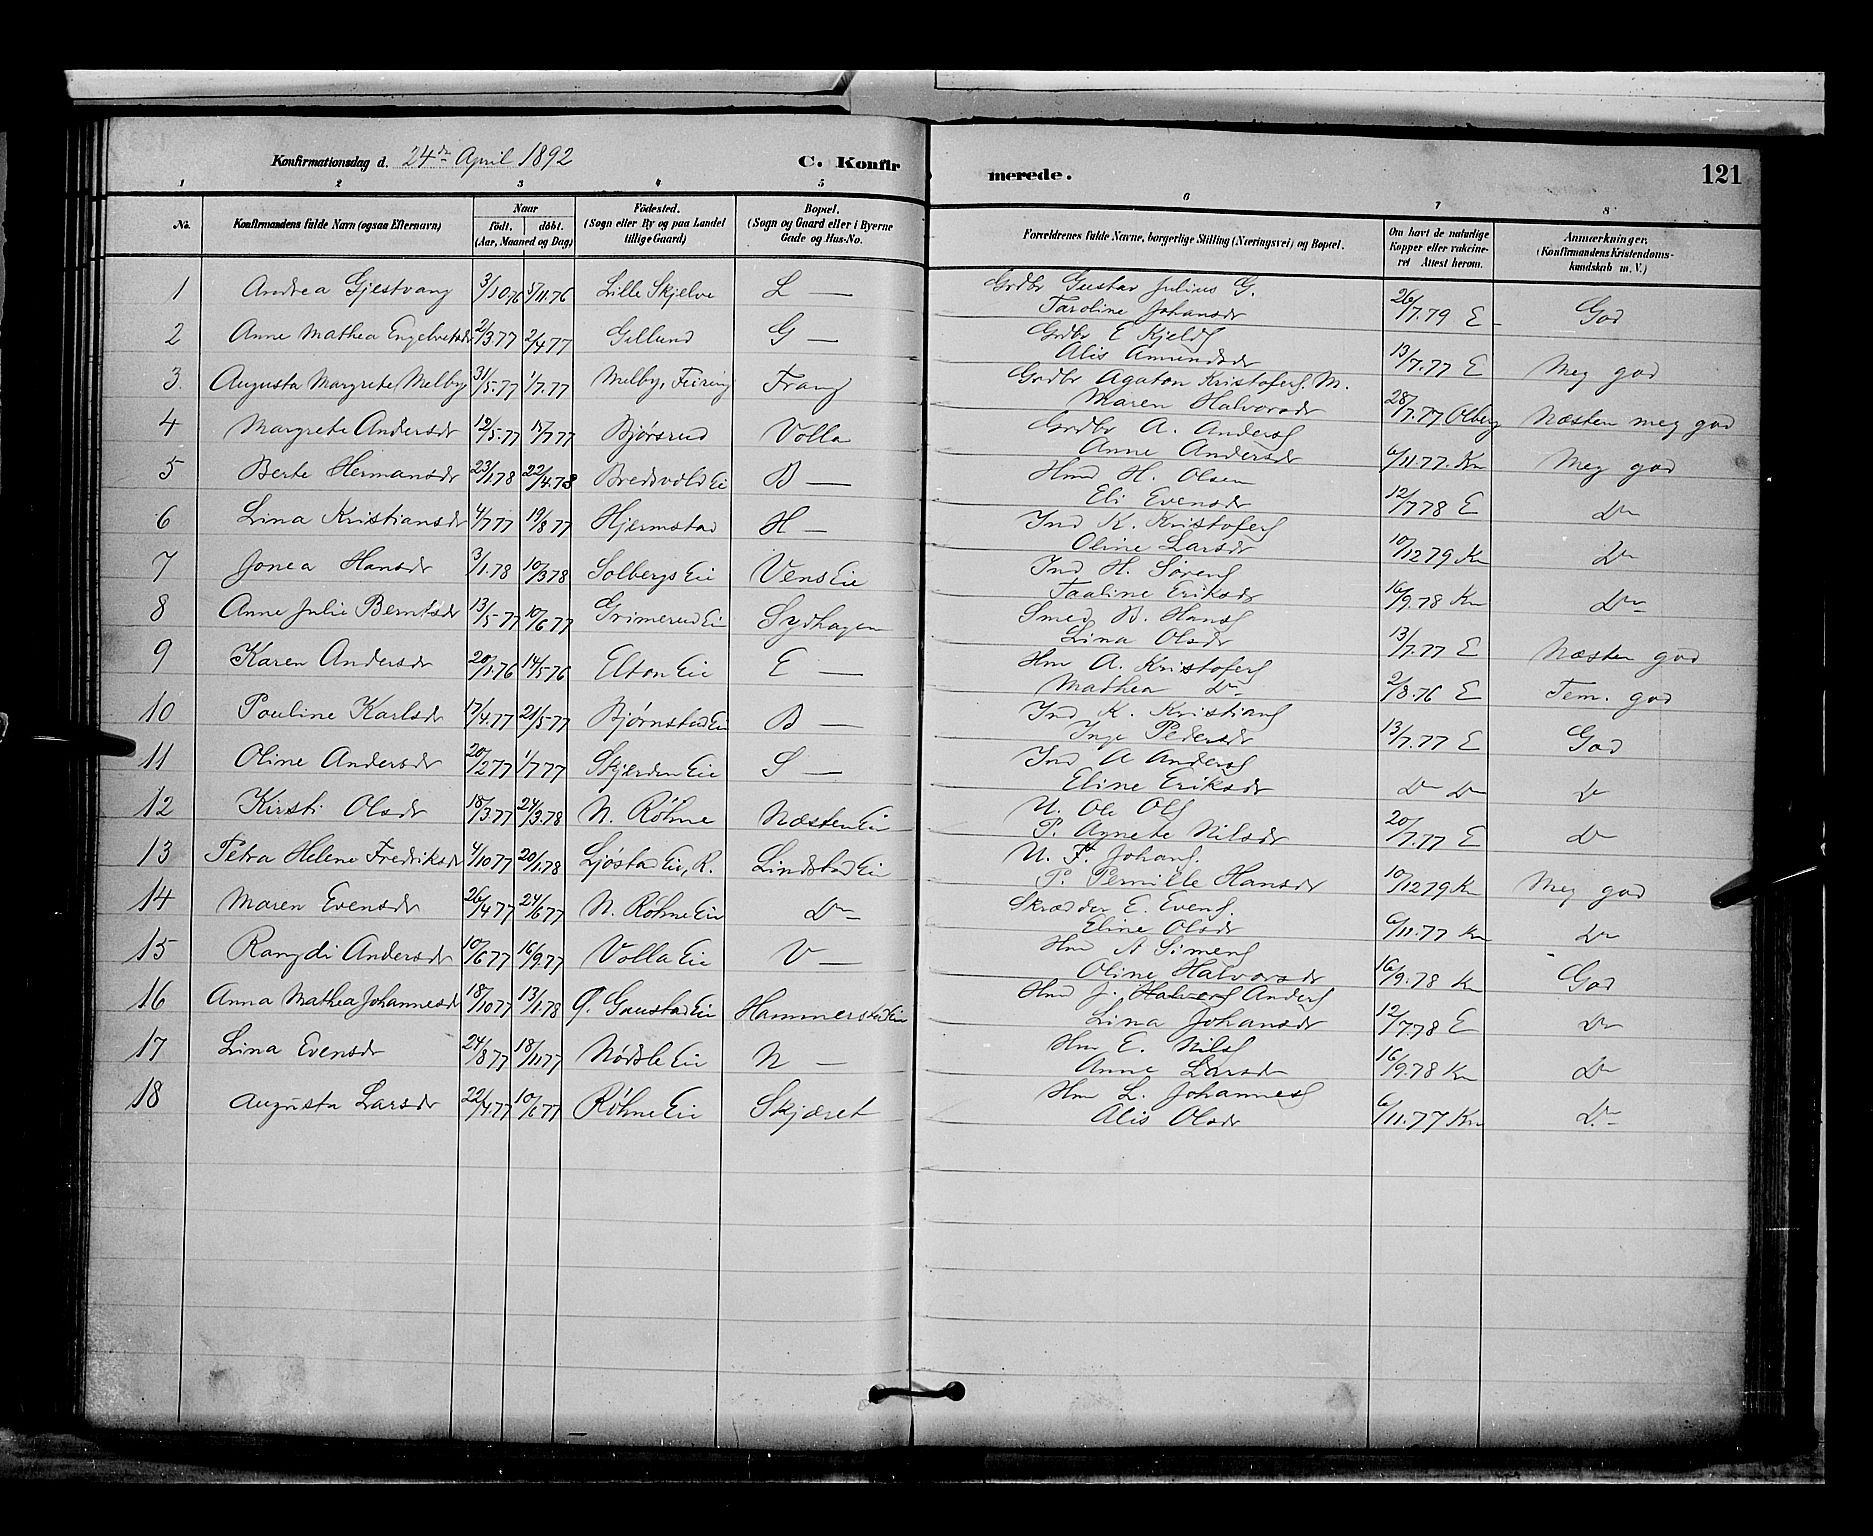 Konfirmationsdag d. 24de April 1892 C. Konfir merede. 121
1 2 3 4 5 6 7 8
No. Konfirmandens fulde Navn (ogsaa Efternavn) Naar født. døbt. (Aar, Maaned og Dag) Fødested. (Sogn eller By og paa Landet tillige Gaard) Bopæl. (Sogn og Gaard eller i Byerne Gade og Hus-No. Forældrenes fulde Navne, borgerlige Stilling (Næringsvei) og Bopæl. Om havt de naturlige Kopper eller vakcineret Attest herom. Anmærkninger. (Konfirmandens Kristendomskundskab m. V.)
1 Andrea Gjestvang 3/10 76 5/11.76 Lille Skjelve L — Grdbr Gustav Julius G.
Taroline Johansdr 26/7.79 E God
2 Anne Mathea Engelvetsdr 2/3.77 2/4 77 Gillund G — Grdbr E Kjelds
Alis Amundsdr 13/7.77 E Meg god
3. Augusta Margrete Melby 31/5.77 1/7.77 Melby, Feiring Frang Grdbr Agaton Kristofers. M.
Maren Halvorsdr 28/7.77 Olberg Næsten meg god
4 Margrete Andersdr 12/5.77 15/7 77 Bjørsrud Volla Grdbr A. Anders
Anne Andersdr 6/11.77. Kn Meg god
5 Berte Hermansdr 23/1.78 22/4.78 Bredsvold Ei B — Hmd H. Olsen
Eli Evensdr 12/7 78 E Do
6 Lina Kristiansdr 4/7 77 19/8 77 Hjermstad H — Ind K. Kristofers
Oline Larsdr 10/12 79 Kn Do
7 Jonea Hansdr 3/1.78 10/3 78 Solbergs Eie Vens Eie Ind H. Sørens
Taaline Eriksdr 16/9.78 Kn Do
8 Anne Julie Berntsdr 13/5.77 10/6 77 Grimerud Ei Sydhagen Smed B. Hans
Lina Olsdr 13/7.77 E Næsten god
9 Karen Andersdr 20/1.76 14/5 76 Elton Eie E — Hm A. Kristofers
Mathea Do 2/8.76 E Tem. god
10 Pauline Karlsdr 17/4.77 21/5.77 Bjørnstad Ei B — Ind K. Kristians
Inge Pedersdr 13/7.77 E God
11 Oline Andersdr 20/2 77 1/7 77 Skjerden Eie S — Ind A Anders
Eline Eriksdr Do Do Do
12 Kirsti Olsdr 18/3 77 24/3.78 N. Røhne Næsten Ei U. Ole Ols
P. Agnete Nilsdr 20/7.77 E Do
13 Petra Helene Fredriksdr 4/10 77 20/1.78 Ljøstad Eie, R. Lindstad Ei U. F. Johans.
P. Pernille Hansdr 10/12 79 Kn Meg god
14 Maren Evensdr 26/4 77 24/6 77 N. Røhne Eie Do Skrædder E. Evens.
Eline Olsdr 6/11.77 Kn Do
15 Rangdi Andersdr 10/6 77 16/9.77 Volla Eie V — Hm A Simens
Oline Halvorsdr 16/9.78 Kn God
16 Anna Mathea Johannesdr 18/10 77 13/1.78 Ø. Gaustad Eie Hammerstad Eie Hmd J. Halvors Anders
Lina Johansdr 12/7 78 E Do
17 Lina Evensdr 24/8 77 18/11 77 Nordsle Eie N — Hm E. Nils
Anne Larsdr 16/9.78 Kn Do
18 Augusta Larsdr 22/4.77 10/6 77 Røhne Eie Skjæret Hm L. Johannes
Alis Olsdr 6/11.77 Kn Do